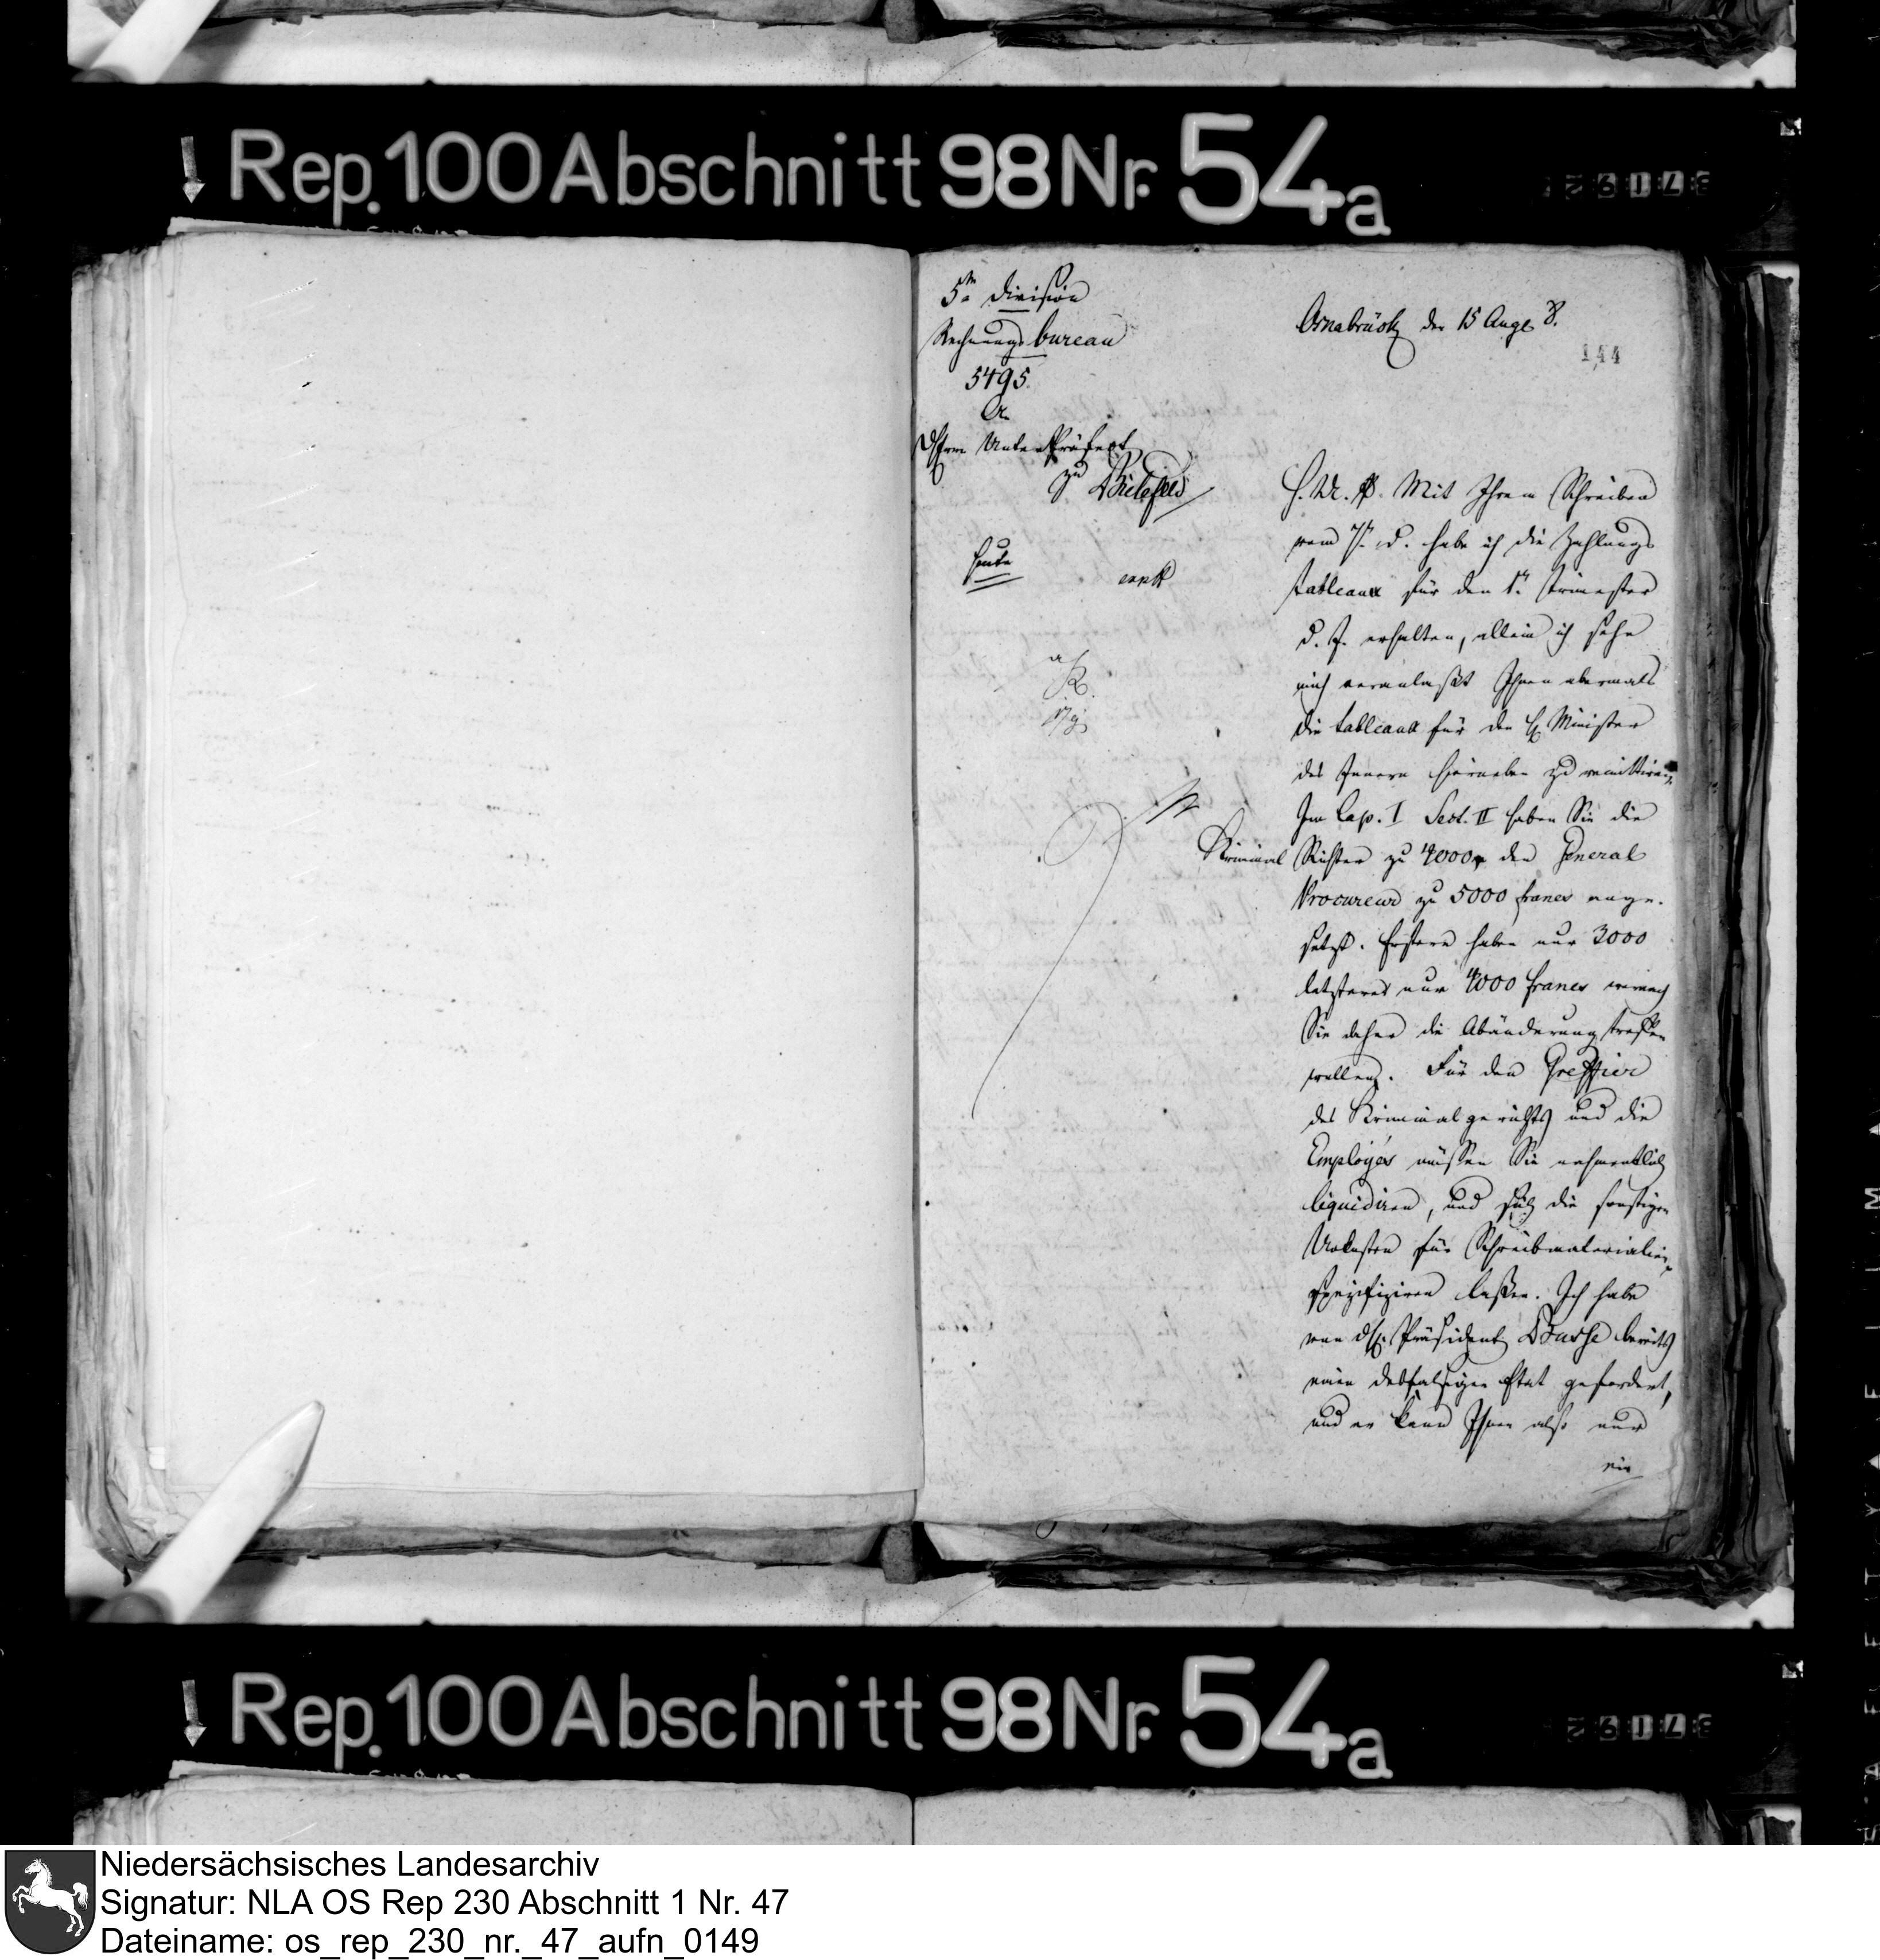 Rep. 100 Abschnitt 98 Nr. 54a
5te Division
Rechnungsbureau
5495.
An
Herrn Unter Präfect
zu Bielefeld
Osnabrück den 15 Aug. 8.
144
heute
Mit Ihrem Schreiben
vom 7ten d. habe ich die Zahlungs
tableaux für den 1ten trimester
d. J. erhalten, allein ich sehe
mich veranlaßt Ihnen abermals
die tableaux für den H. Minister
des Innern hierneben zu remittiren.
Im Cap. I Sect. II haben Sie die
Kriminal Richter zu 4000, den General
Procureur zu 5000 francs ange-
setzt. Erstere haben nur 3000
letzterer nur 4000 francs wornach
Sie daher die Abänderung treffen
wollen. Für den Greffier
des Kriminalgerichts und die
Employés müssen Sie nahmentlich
liquidiren, und sich die sonstigen
Unkosten für Schreibmaterialien
spezifiziren lassen. Ich habe
von H. Präsident bereits
einen desfalsigen Etat gefordert,
und er kann Ihnen also nur
ein
Rep. 100 Abschnitt 98 Nr. 54a
Niedersächsisches Landesarchiv
Signatur: NLA OS Rep 230 Abschnitt 1 Nr. 47
Dateiname: os_rep_230_nr._47_aufn_0149